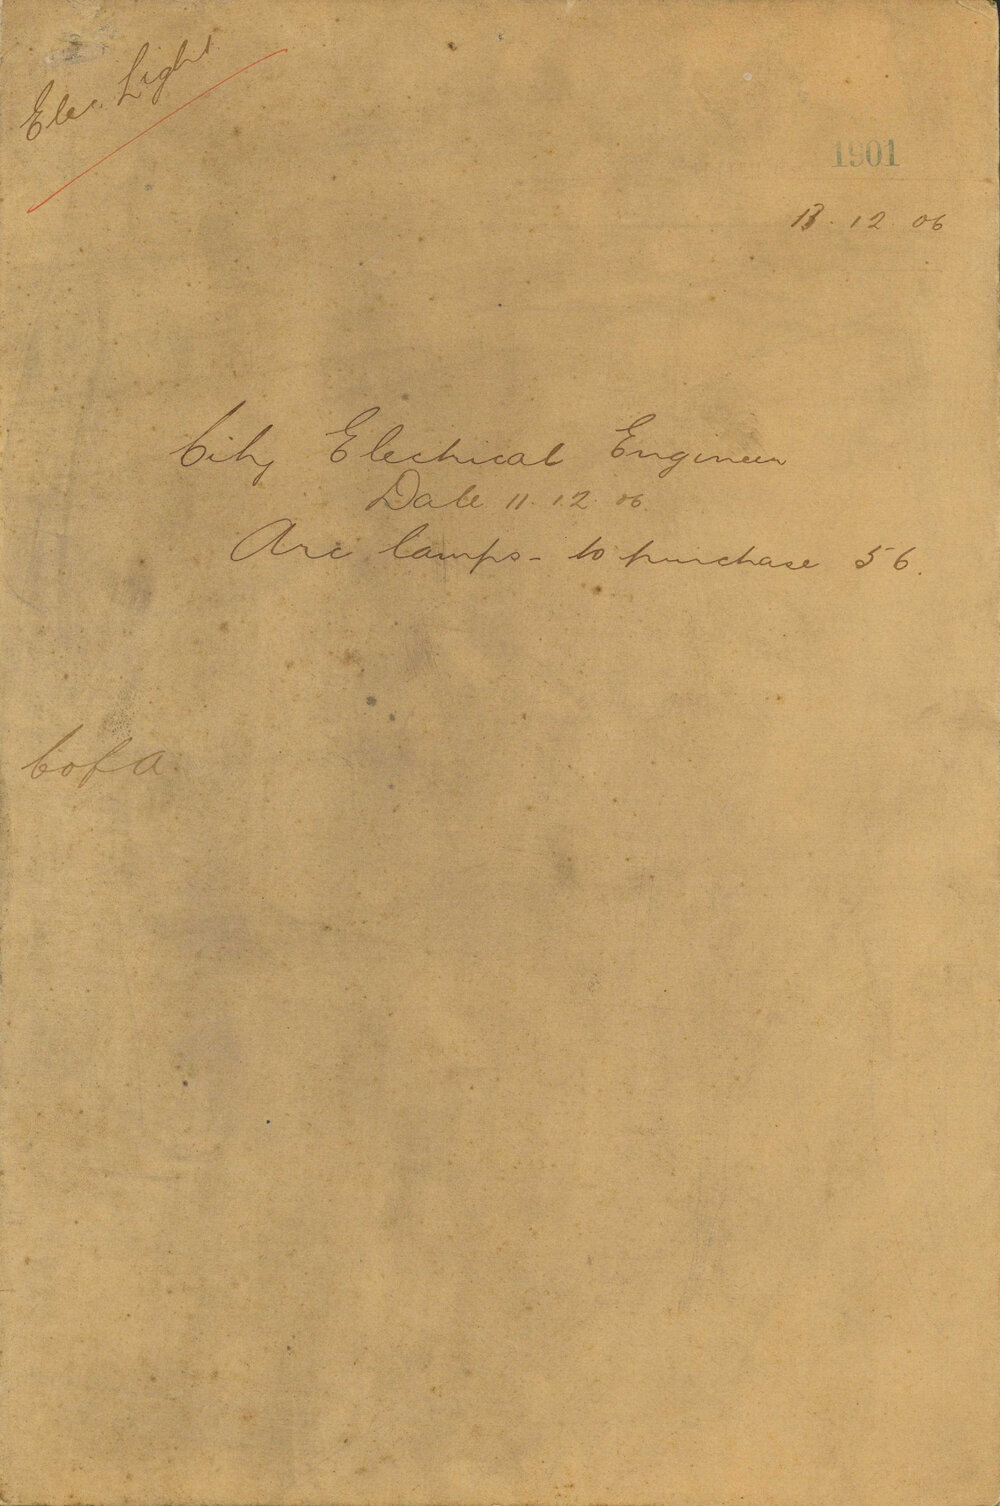 Elec. Light
1901
13. 12 06
City Electrical Engineer
Date 11. 12. 06.
Arc lamps - to purchase 56.
C of A